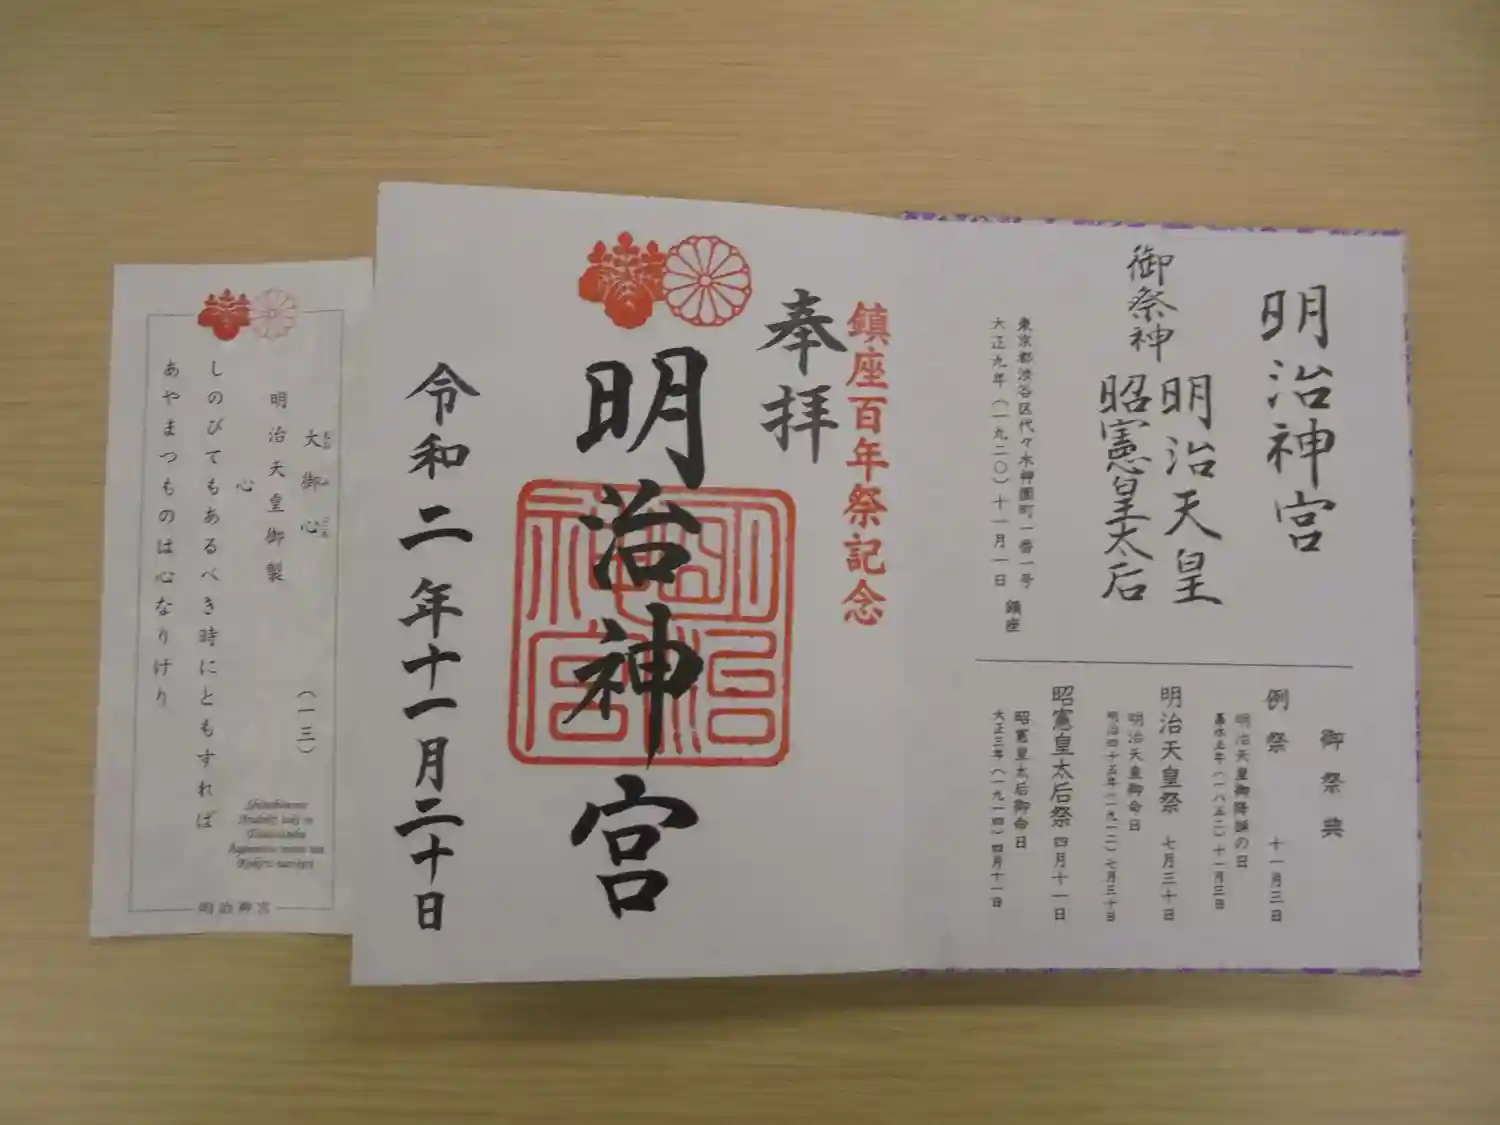 明治神宮
御祭神
明治天皇
昭憲皇太后
東京都渋谷区代々木神園町一番一号
大正九年(一九二〇)十一月一日 鎮座
御祭典
例祭 十一月三日
明治天皇御降誕の日
嘉永五年(一八五二)十一月三日
明治天皇祭 七月三十日
明治天皇御命日
明治四十五年(一九一二)七月三十日
昭憲皇太后祭 四月十一日
昭憲皇太后御命日
大正三年(一九一四)四月十一日
鎮座百年祭記念
奉拝
明治神宮
明治神宮
令和二年十一月二十日
大御心 (一三)
おお み ごころ
明治天皇御製
心
しのびてもあるべき時にともすれば
あやまつものは心なりけり
Shinobitemo
Arubeki toki ni
Tomosureba
Ayamatsu mono wa
Kokoro narikeri
明治神宮